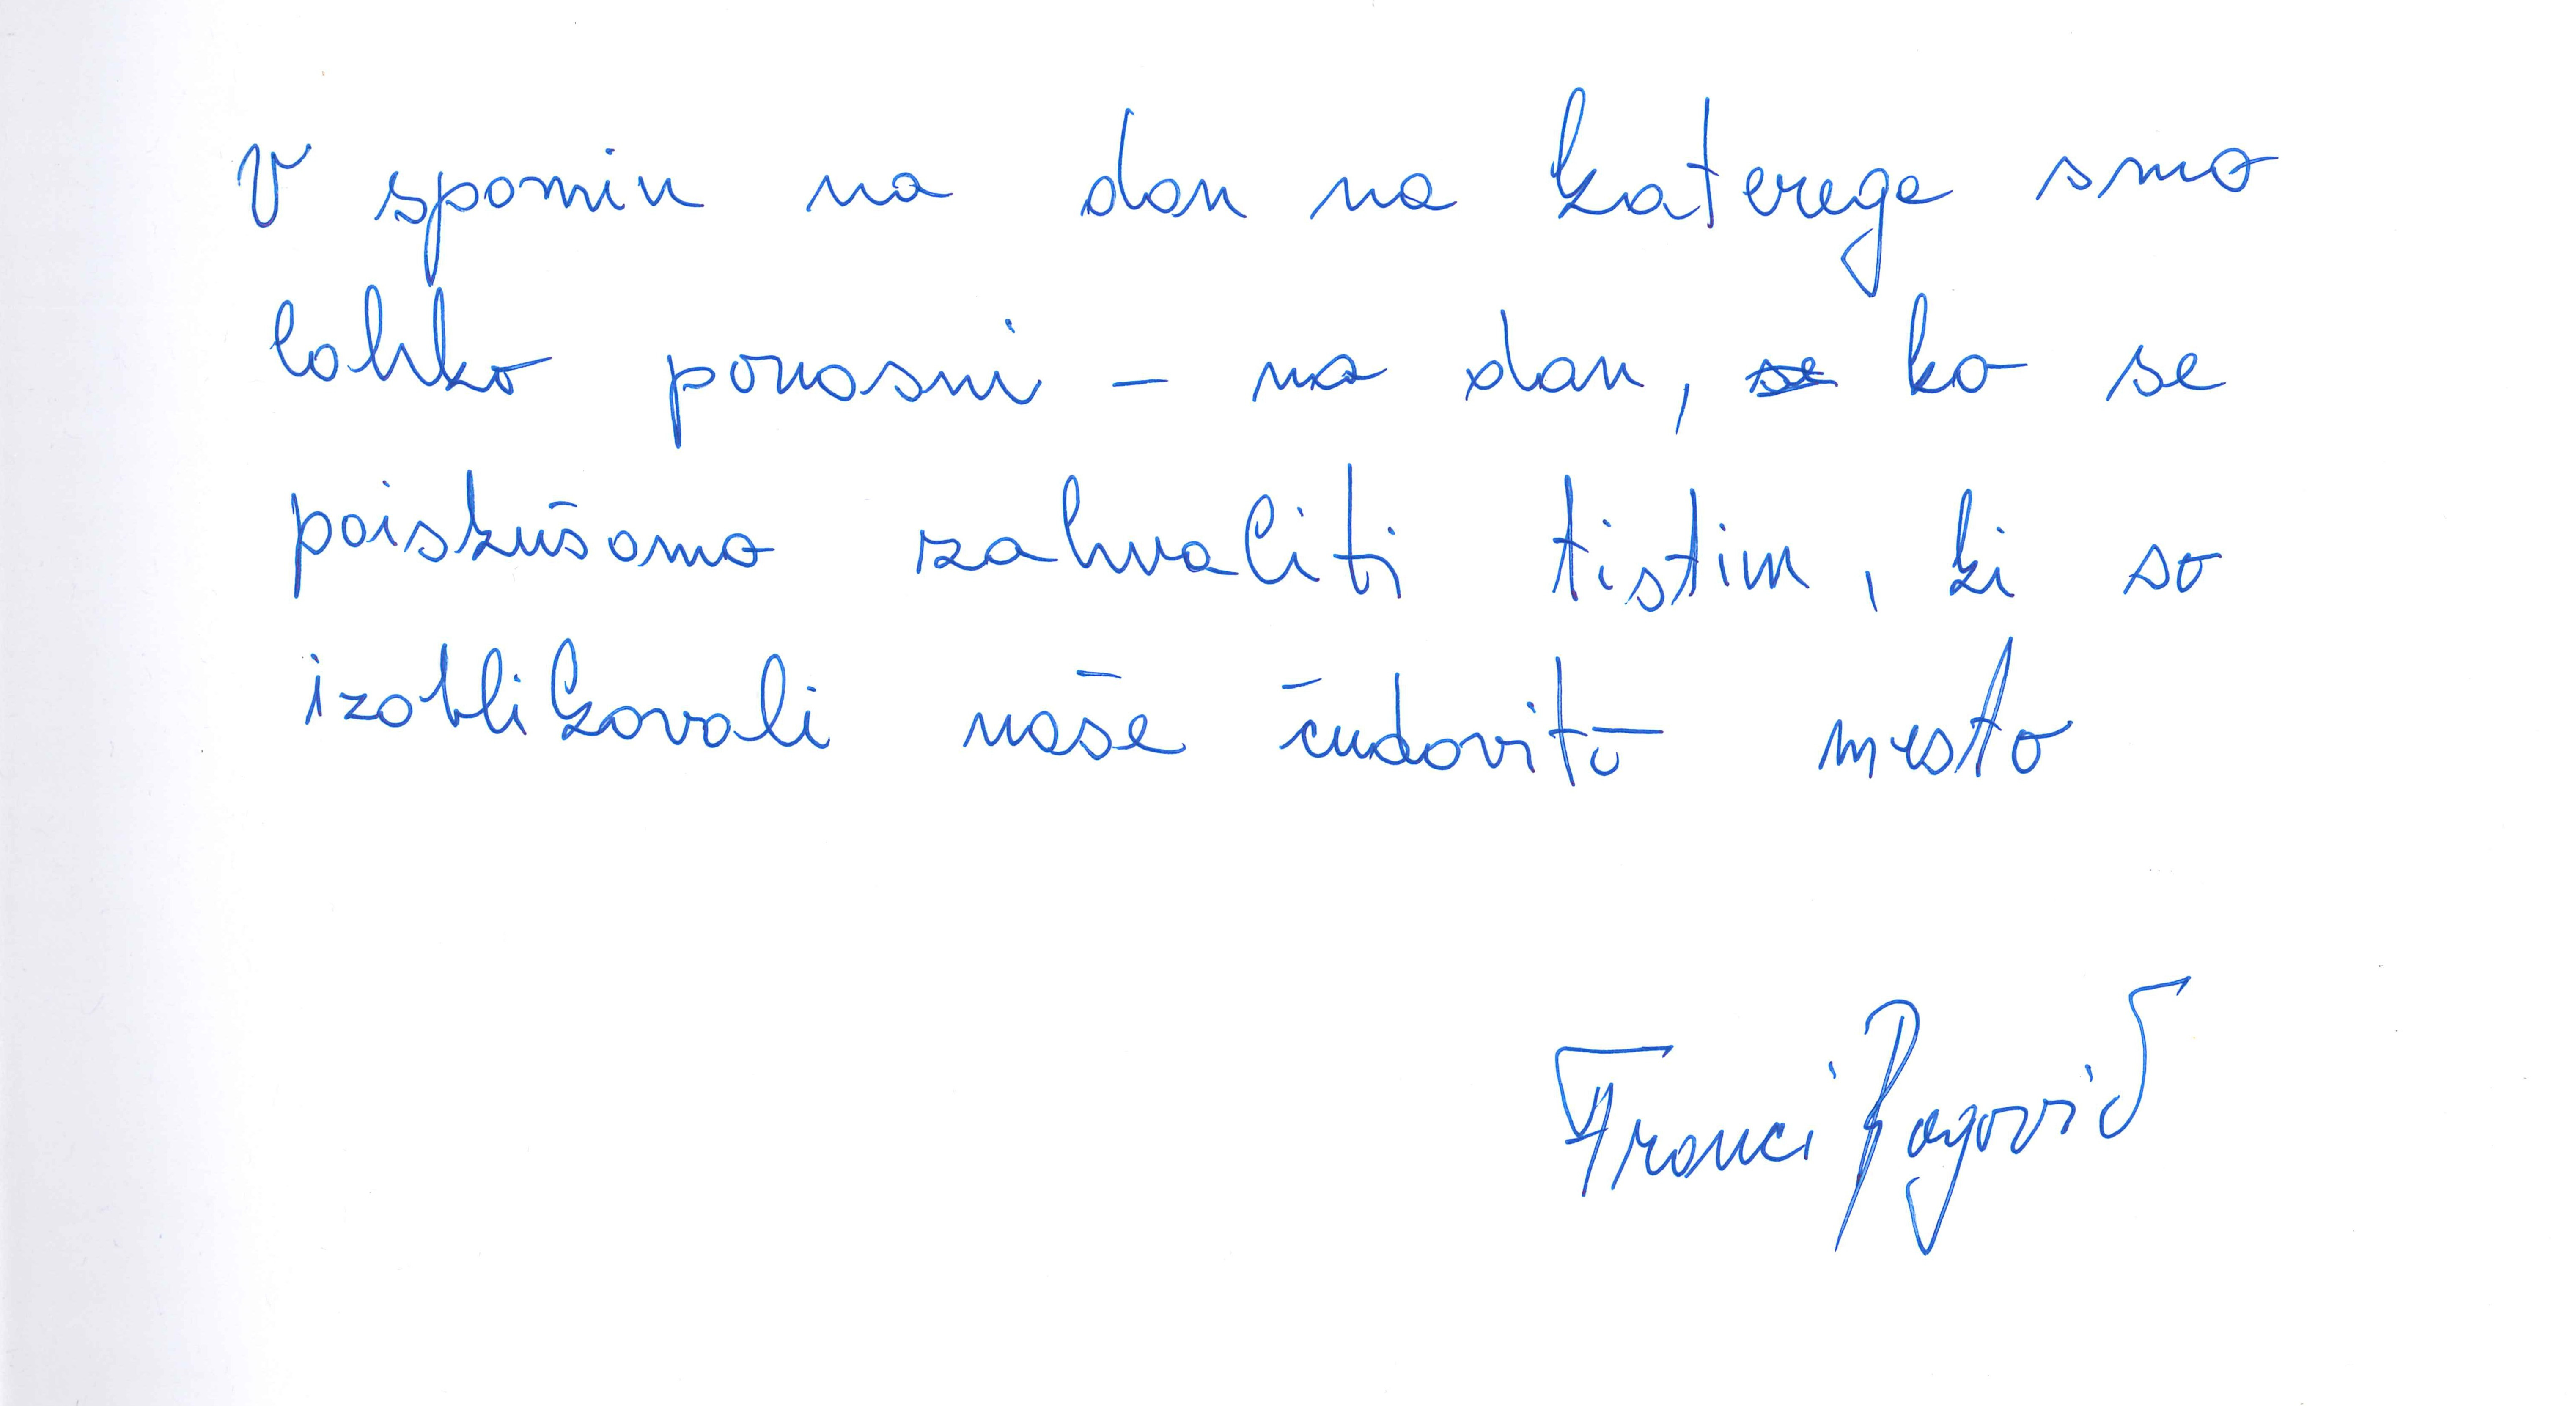 V spomin na dan na katerega smo
lahko ponosni – na dan, se ko se
poiskušamo zahvaliti tistim, ki so
izoblikovali naše čudovito mesto
Franci